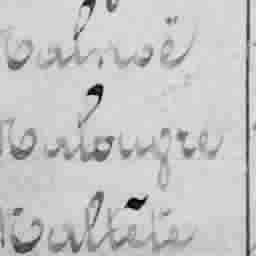 Malnoë
Malougre
Maltête